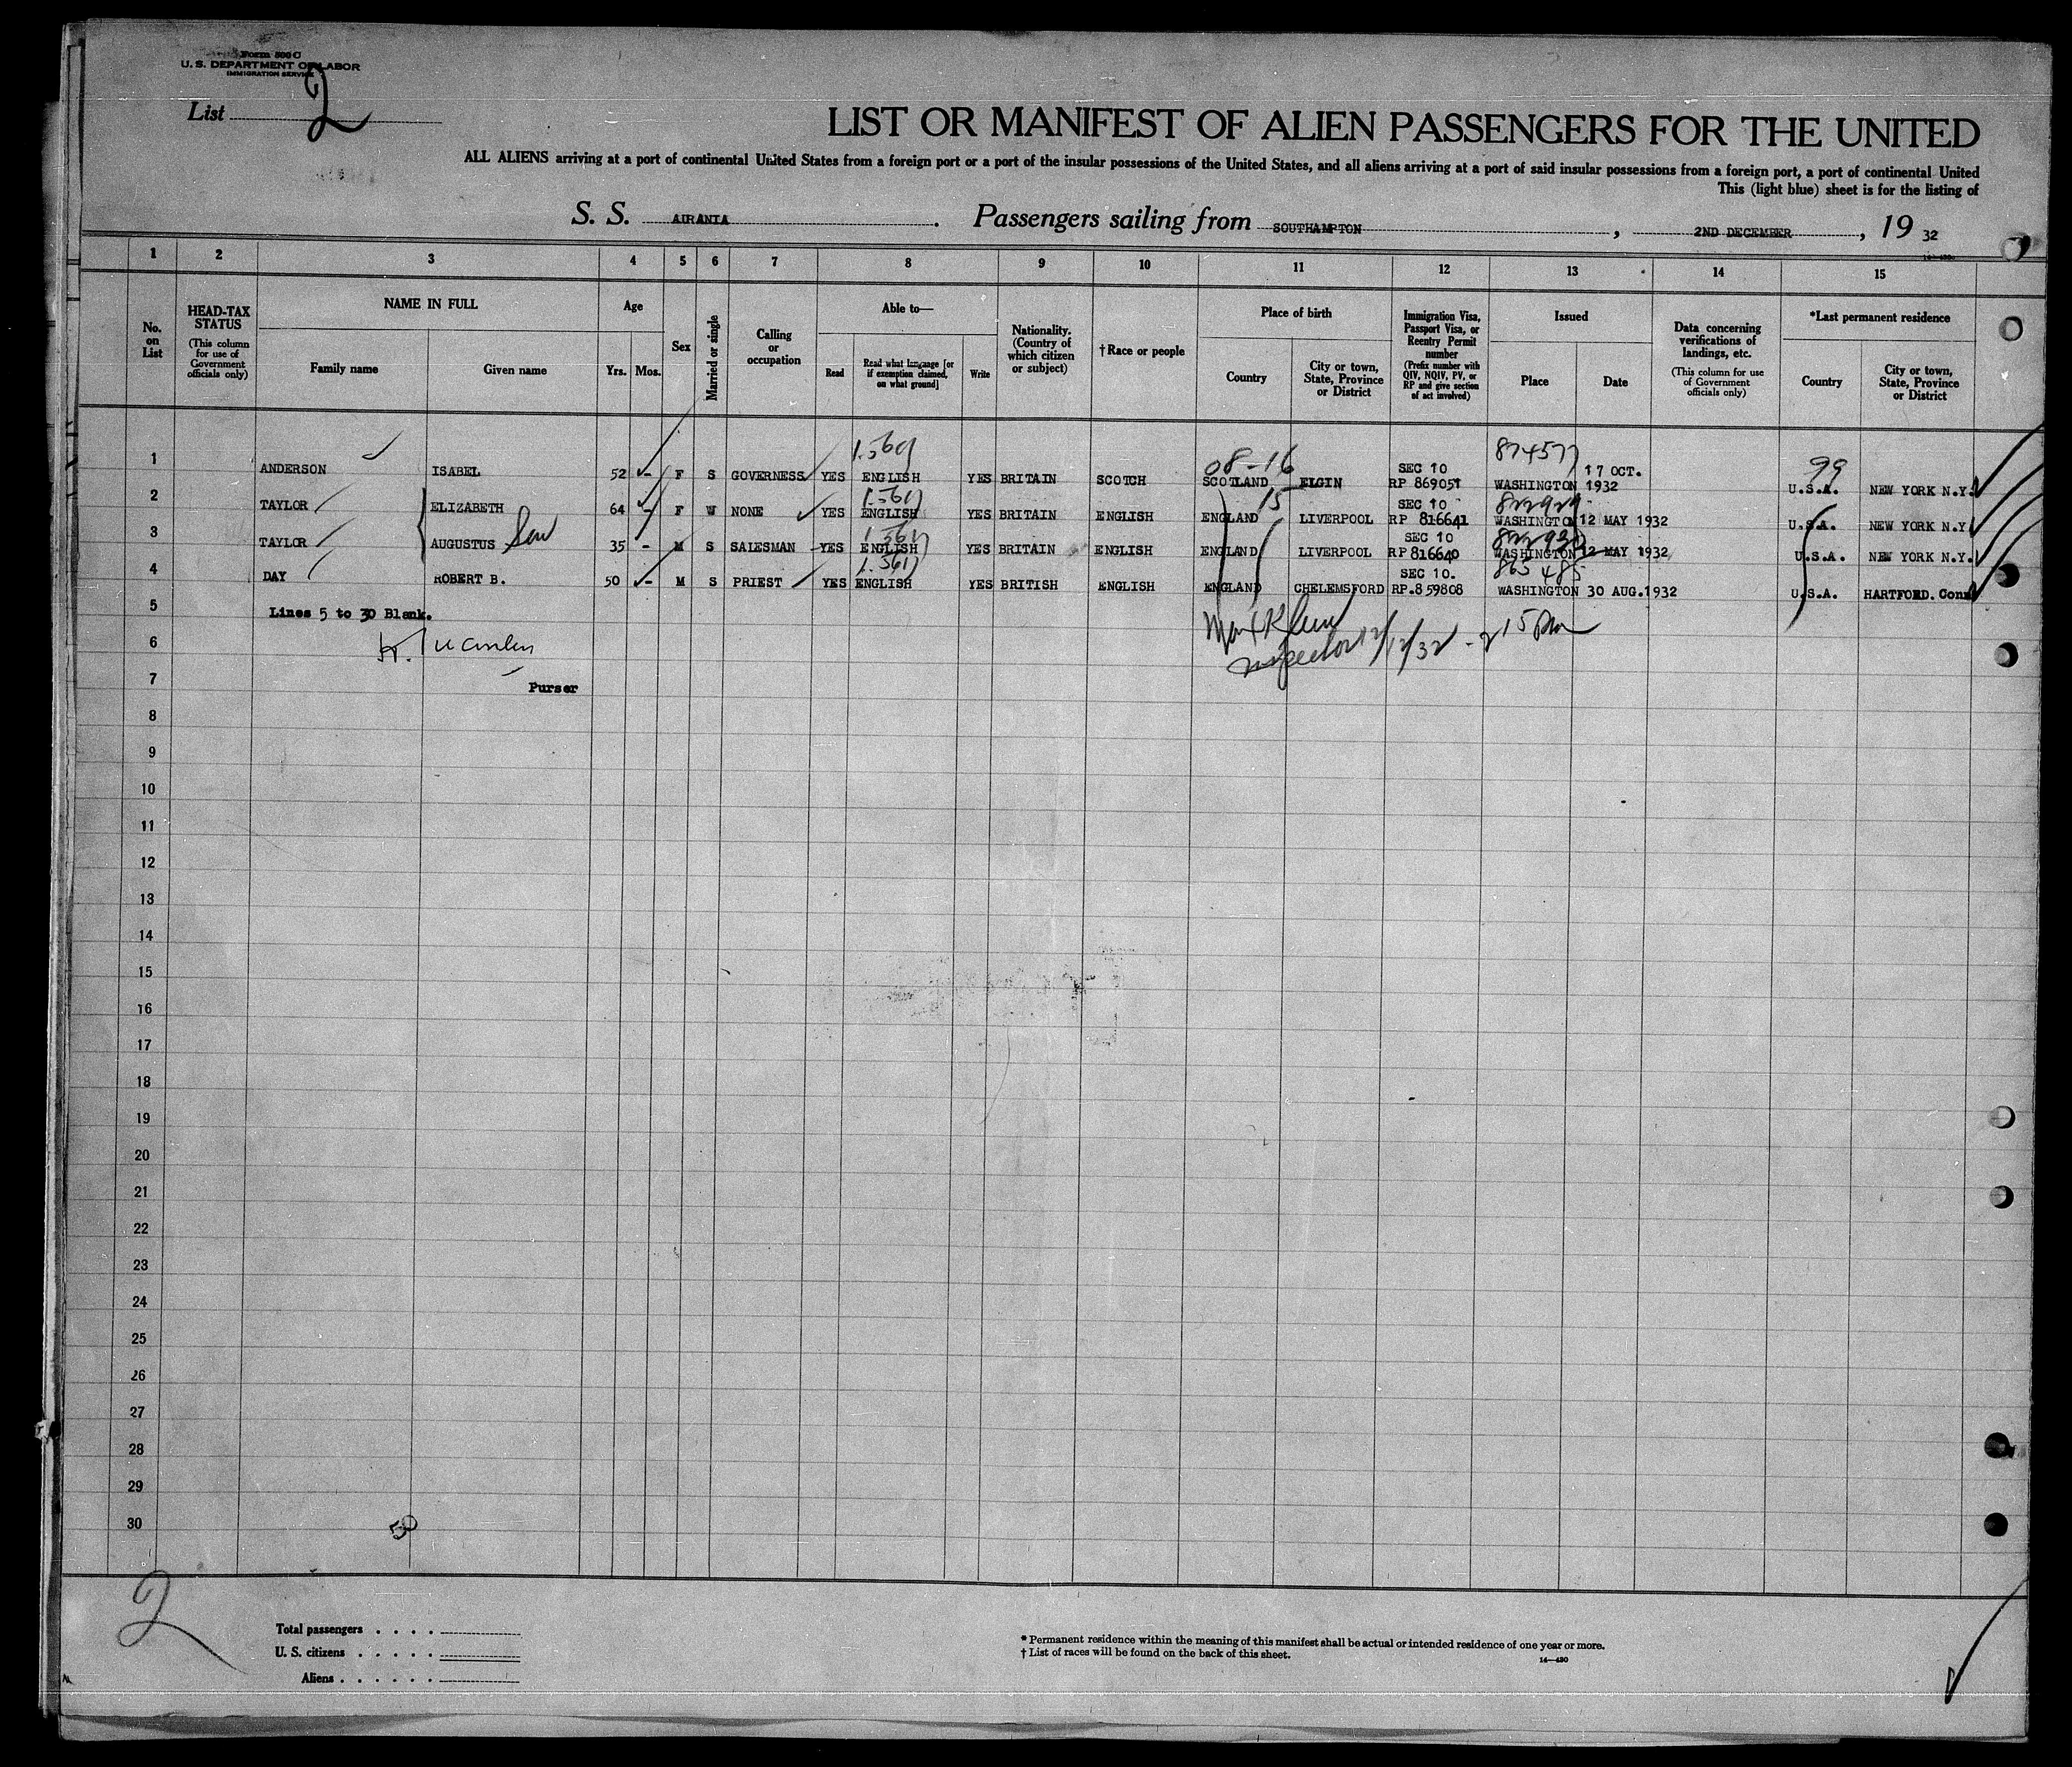 Form 500 C
U. S. DEPARTMENT OF LABOR
IMMIGRATION SERVICE
List 2
LIST OR MANIFEST OF ALIEN PASSENGERS FOR THE UNITED
ALL ALIENS arriving at a port of continental United States from a foreign port or a port of the insular possessions of the United States, and all aliens arriving at a port of said insular possessions from a foreign port, a port of continental United
This (light blue) sheet is for the listing of
S. S. AURANIA. Passengers sailing from SOUTHAMPTON, 2ND DECEMBER, 19 32
1 2 3 4 5 6 7 8 9 10 11 12 13 14 15
No. on List
HEAD-TAX STATUS (This column for use of Government officials only)
NAME IN FULL
Family name Given name
Age
Yrs. Mos.
Sex
Married or single
Calling or occupation
Able to—
Read Read what language [or if exemption claimed, on what ground] Write
Nationality. (Country of which citizen or subject)
†Race or people
Place of birth
Country City or town, State, Province or District
Immigration Visa, Passport Visa, or Reentry Permit number (Prefix number with QIV, NQIV, PV, or RP and give section of act involved)
Issued
Place Date
Data concerning verifications of landings, etc. (This column for use of Government officials only)
*Last permanent residence
Country City or town, State, Province or District
08-16 874577 99
1 ANDERSON ISABEL 52 - F S GOVERNESS YES ENGLISH YES BRITAIN SCOTCH SCOTLAND ELGIN SEC 10 RP 869051 WASHINGTON 17 OCT. 1932 U.S.A. NEW YORK N.Y.
15 822929
2 TAYLOR ELIZABETH 64 - F W NONE YES ENGLISH YES BRITAIN ENGLISH ENGLAND LIVERPOOL SEC 10 RP 816641 WASHINGTON 12 MAY 1932 U.S.A. NEW YORK N.Y.
822930
3 TAYLOR AUGUSTUS Son 35 - M S SALESMAN YES ENGLISH YES BRITAIN ENGLISH ENGLAND LIVERPOOL SEC 10 RP 816640 WASHINGTON 12 MAY 1932 U.S.A. NEW YORK N.Y.
865485
4 DAY ROBERT B. 50 - M S PRIEST YES ENGLISH YES BRITISH ENGLISH ENGLAND CHELEMSFORD SEC 10. RP.859808 WASHINGTON 30 AUG.1932 U.S.A. HARTFORD. Conn
5 Lines 5 to 30 Blank.
Max Klein
6
Inspector 12/12/32 - 2 15 Pm
7 Purser
8
9
10
11
12
13
14
15
16
17
18
19
20
21
22
23
24
25
26
27
28
29
30
50
2
Total passengers . . . .
U. S. citizens . . . . .
Aliens . . . . . .
* Permanent residence within the meaning of this manifest shall be actual or intended residence of one year or more.
† List of races will be found on the back of this sheet.
14—430